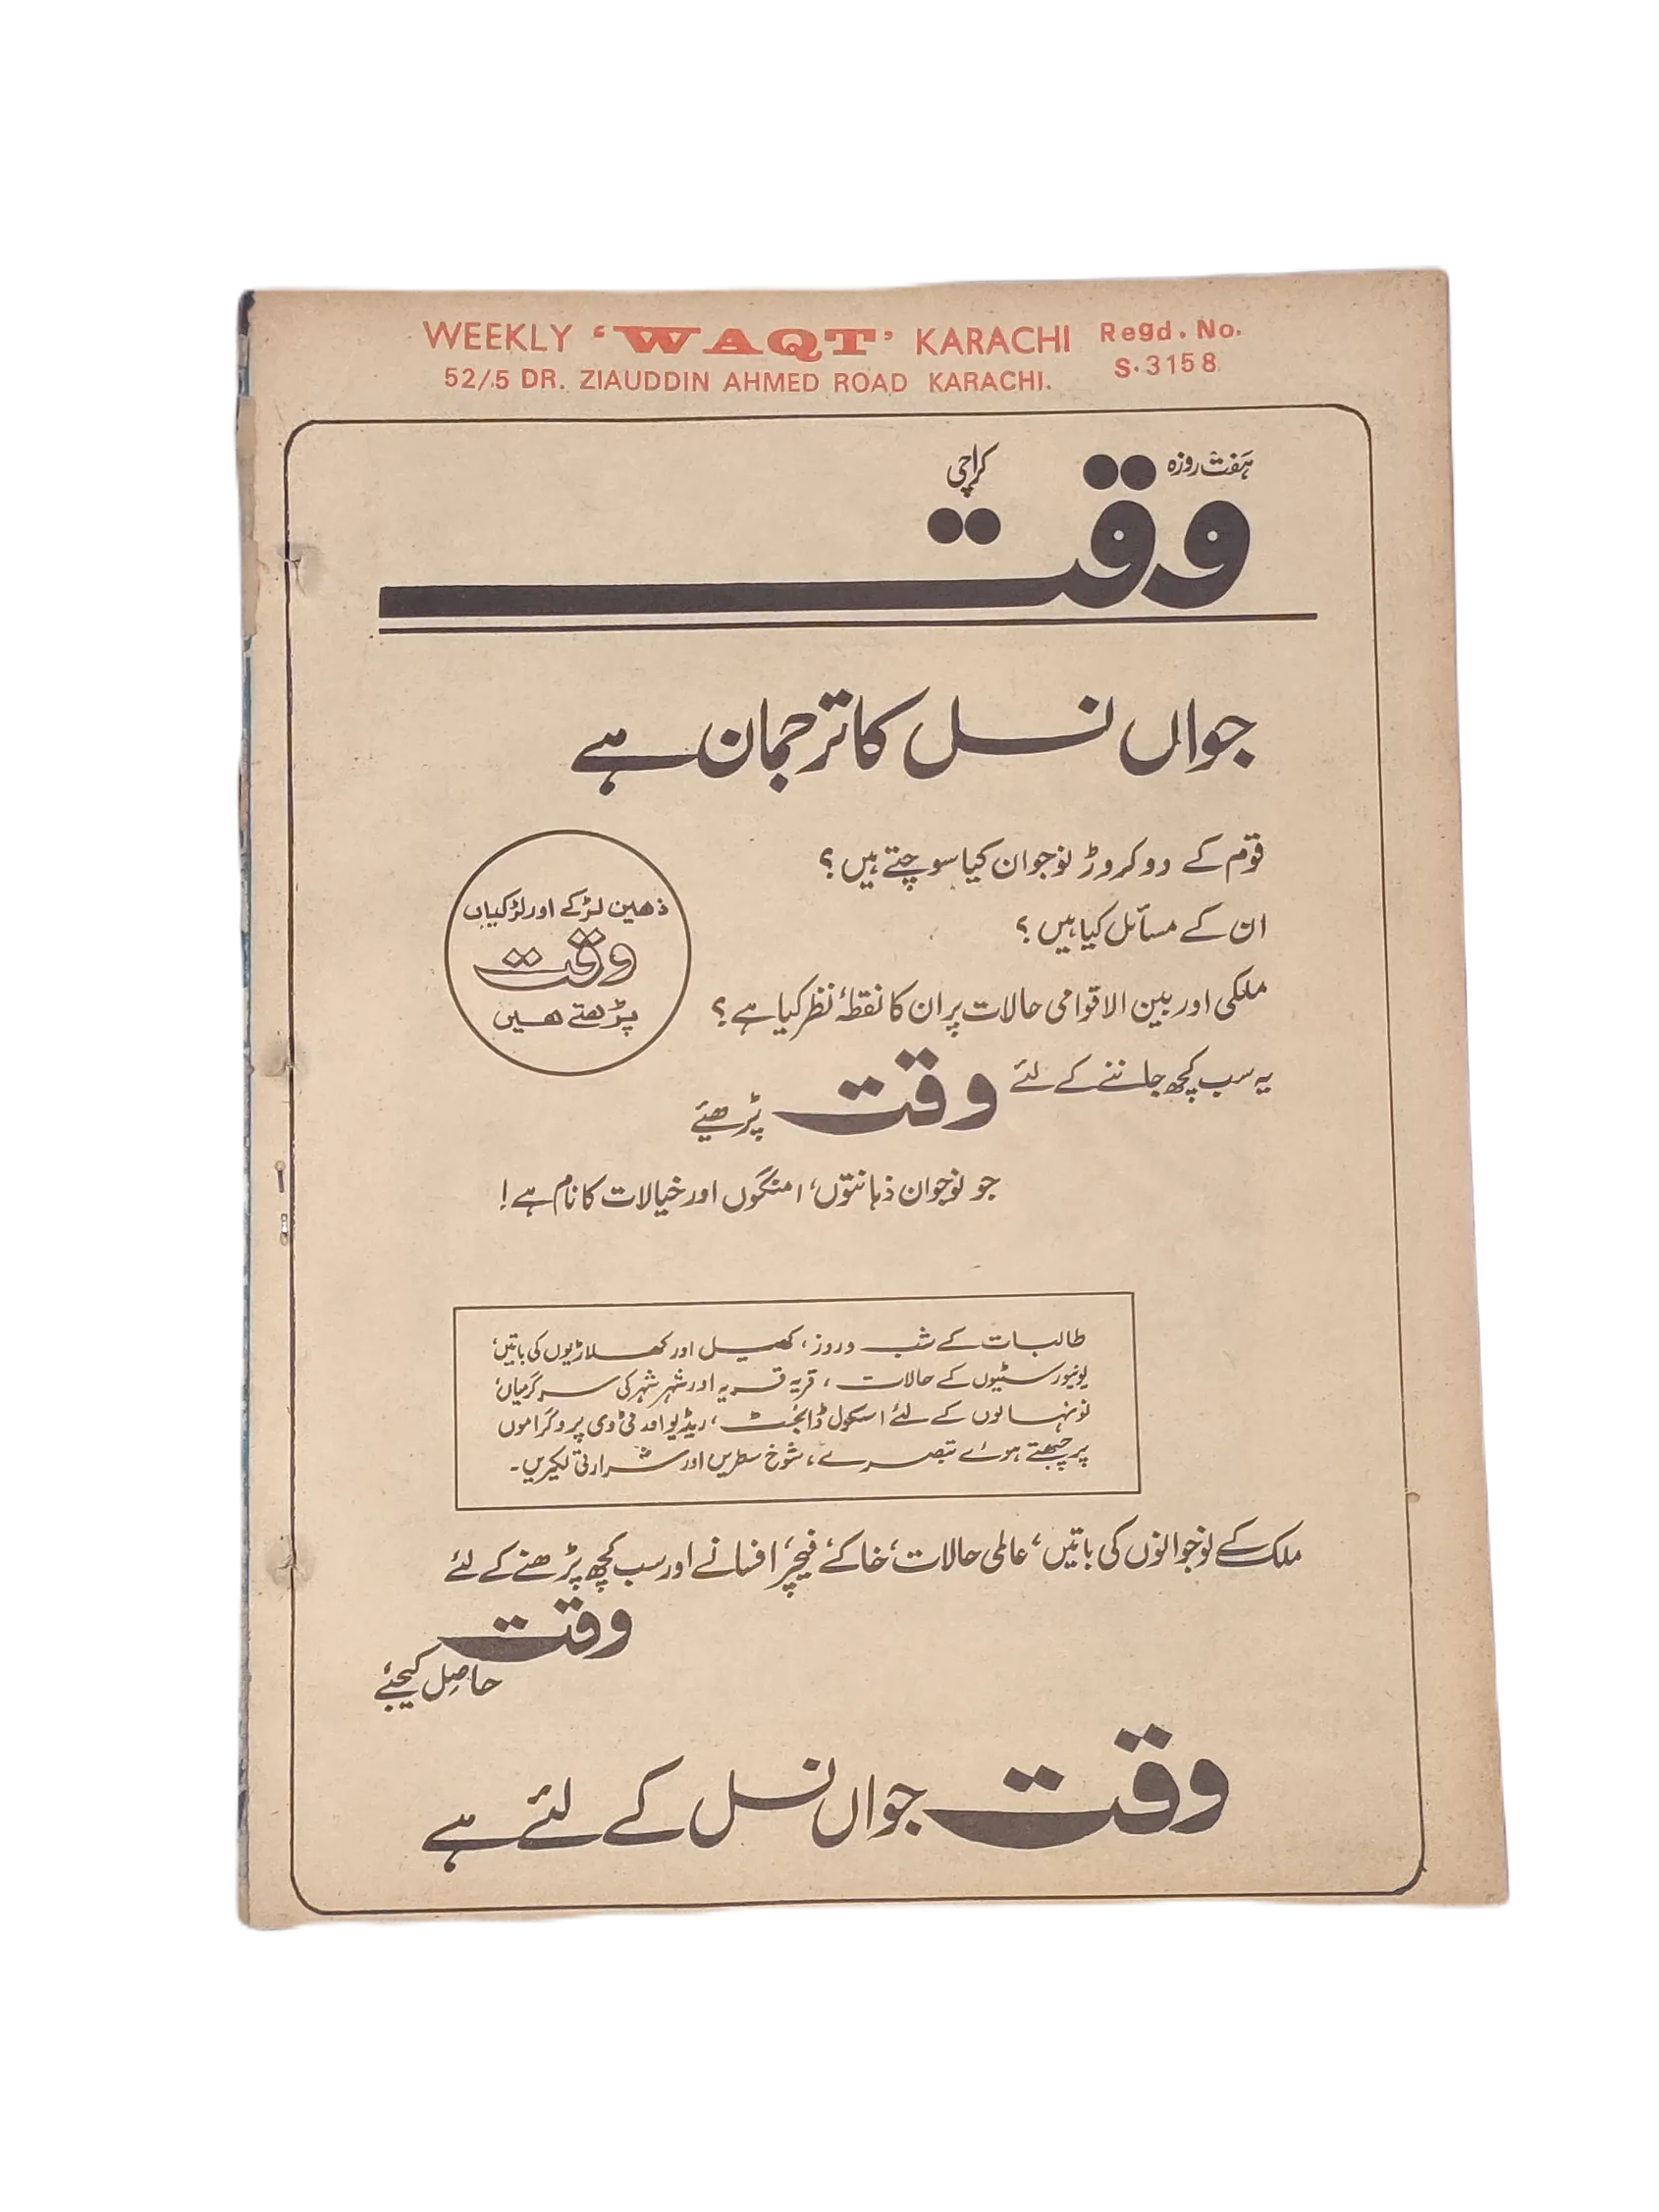 WEEKLY ‘WAQT’ KARACHI Regd. No.
52/5 DR. ZIAUDDIN AHMED ROAD KARACHI. S.3158
ہفت روزہ
وقت
کراچی
جواں نسل کا ترجمان ہے
قوم کے دو کروڑ نوجوان کیا سوچتے ہیں؟
ان کے مسائل کیا ہیں؟
ملکی اور بین الاقوامی حالات پر ان کا نقطۂ نظر کیا ہے؟
یہ سب کچھ جاننے کے لئے وقت پڑھیئے
جو نوجوان ذہانتوں، امنگوں اور خیالات کا نام ہے!
ذھین لڑکے اور لڑکیاں
وقت
پڑھتے ھیں
طالبات کے شب و روز، کھیل اور کھلاڑیوں کی باتیں،
یونیورسٹیوں کے حالات، قریہ قریہ اور شہر شہر کی سرگرمیاں،
نونہالوں کے لئے اسکول ڈائجسٹ، ریڈیو اور ٹی وی پروگراموں
پر چبھتے ہوئے تبصرے، شوخ سطریں اور شرارتی لکیریں۔
ملک کے نوجوانوں کی باتیں، عالمی حالات، خاکے، فیچر، افسانے اور سب کچھ پڑھنے کے لئے
وقت
حاصل کیجئے
وقت جواں نسل کے لئے ہے